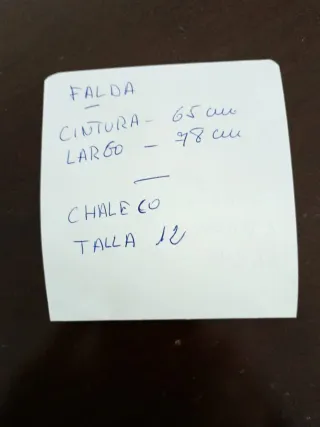 FALDA
CINTURA - 65 cm
LARGO - 78 cm
CHALECO
TALLA 12